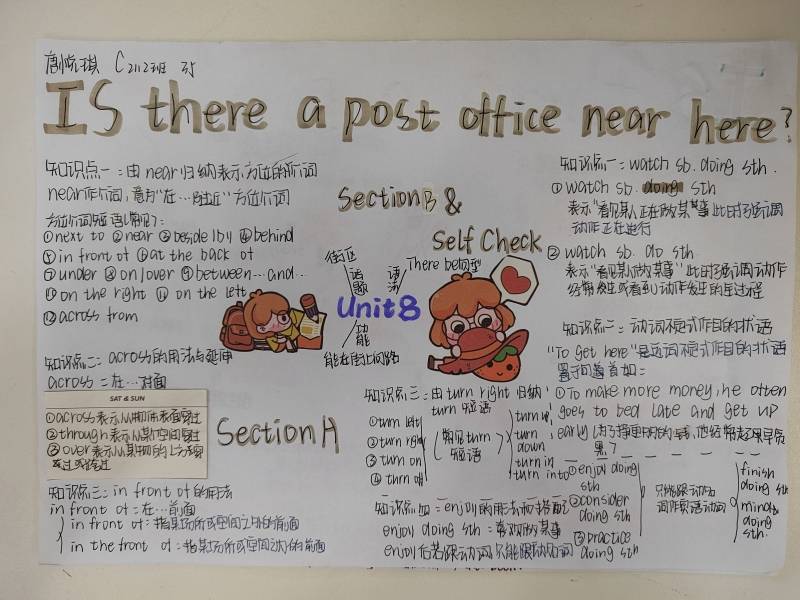 C2112班
IS there a post office near here?
知识点一：由near归纳表示方位的介词
near作介词，意为"在…附近"方位介词
方位介词短语(常见)：
①next to ②near ③beside/by ④behind
⑤in front of ⑥at the back of
⑦under ⑧on/over ⑨between…and…
⑩on the right ⑪on the left
⑫across from
知识点二：across的用法与延伸
across=在…对面
SAT & SUN
①across表示从物体表面穿过
②through表示从某个空间穿过
③over表示从某物的上方
知识点三：in front of的用法
in front of：在…前面
in front of：指某场所或空间之外的前面
in the front of：指某场所或空间之内的前面
Section A
Section B &
Self Check
Unit 8
街区
话题
语法
There be句型
功能
能在街上问路
知识点三：由turn right归纳
turn 短语
①turn left
②turn right
③turn on
④turn off
常见turn
短语
turn up
turn
down
turn in
turn into
知识点四：enjoy的用法和搭配
enjoy doing sth=喜欢做某事
enjoy后若跟动词，只能跟动名词
①enjoy doing
sth
②consider
doing sth
③practice
doing sth
只能跟动名
词作宾语动词
finish
doing sth
mind
doing
sth.
知识点一：watch sb. doing sth.
①watch sb. doing sth
表示"看见某人正在做某事"此时强调
动作正在进行
②watch sb. do sth
表示"看见某人做某事"此时强调动作
经常发生或看到动作发生的全过程
知识点二：动词不定式作目的状语
"To get here"是动词不定式作目的状语
置于句首如：
①To make more money, he often
goes to bed late and get up
early